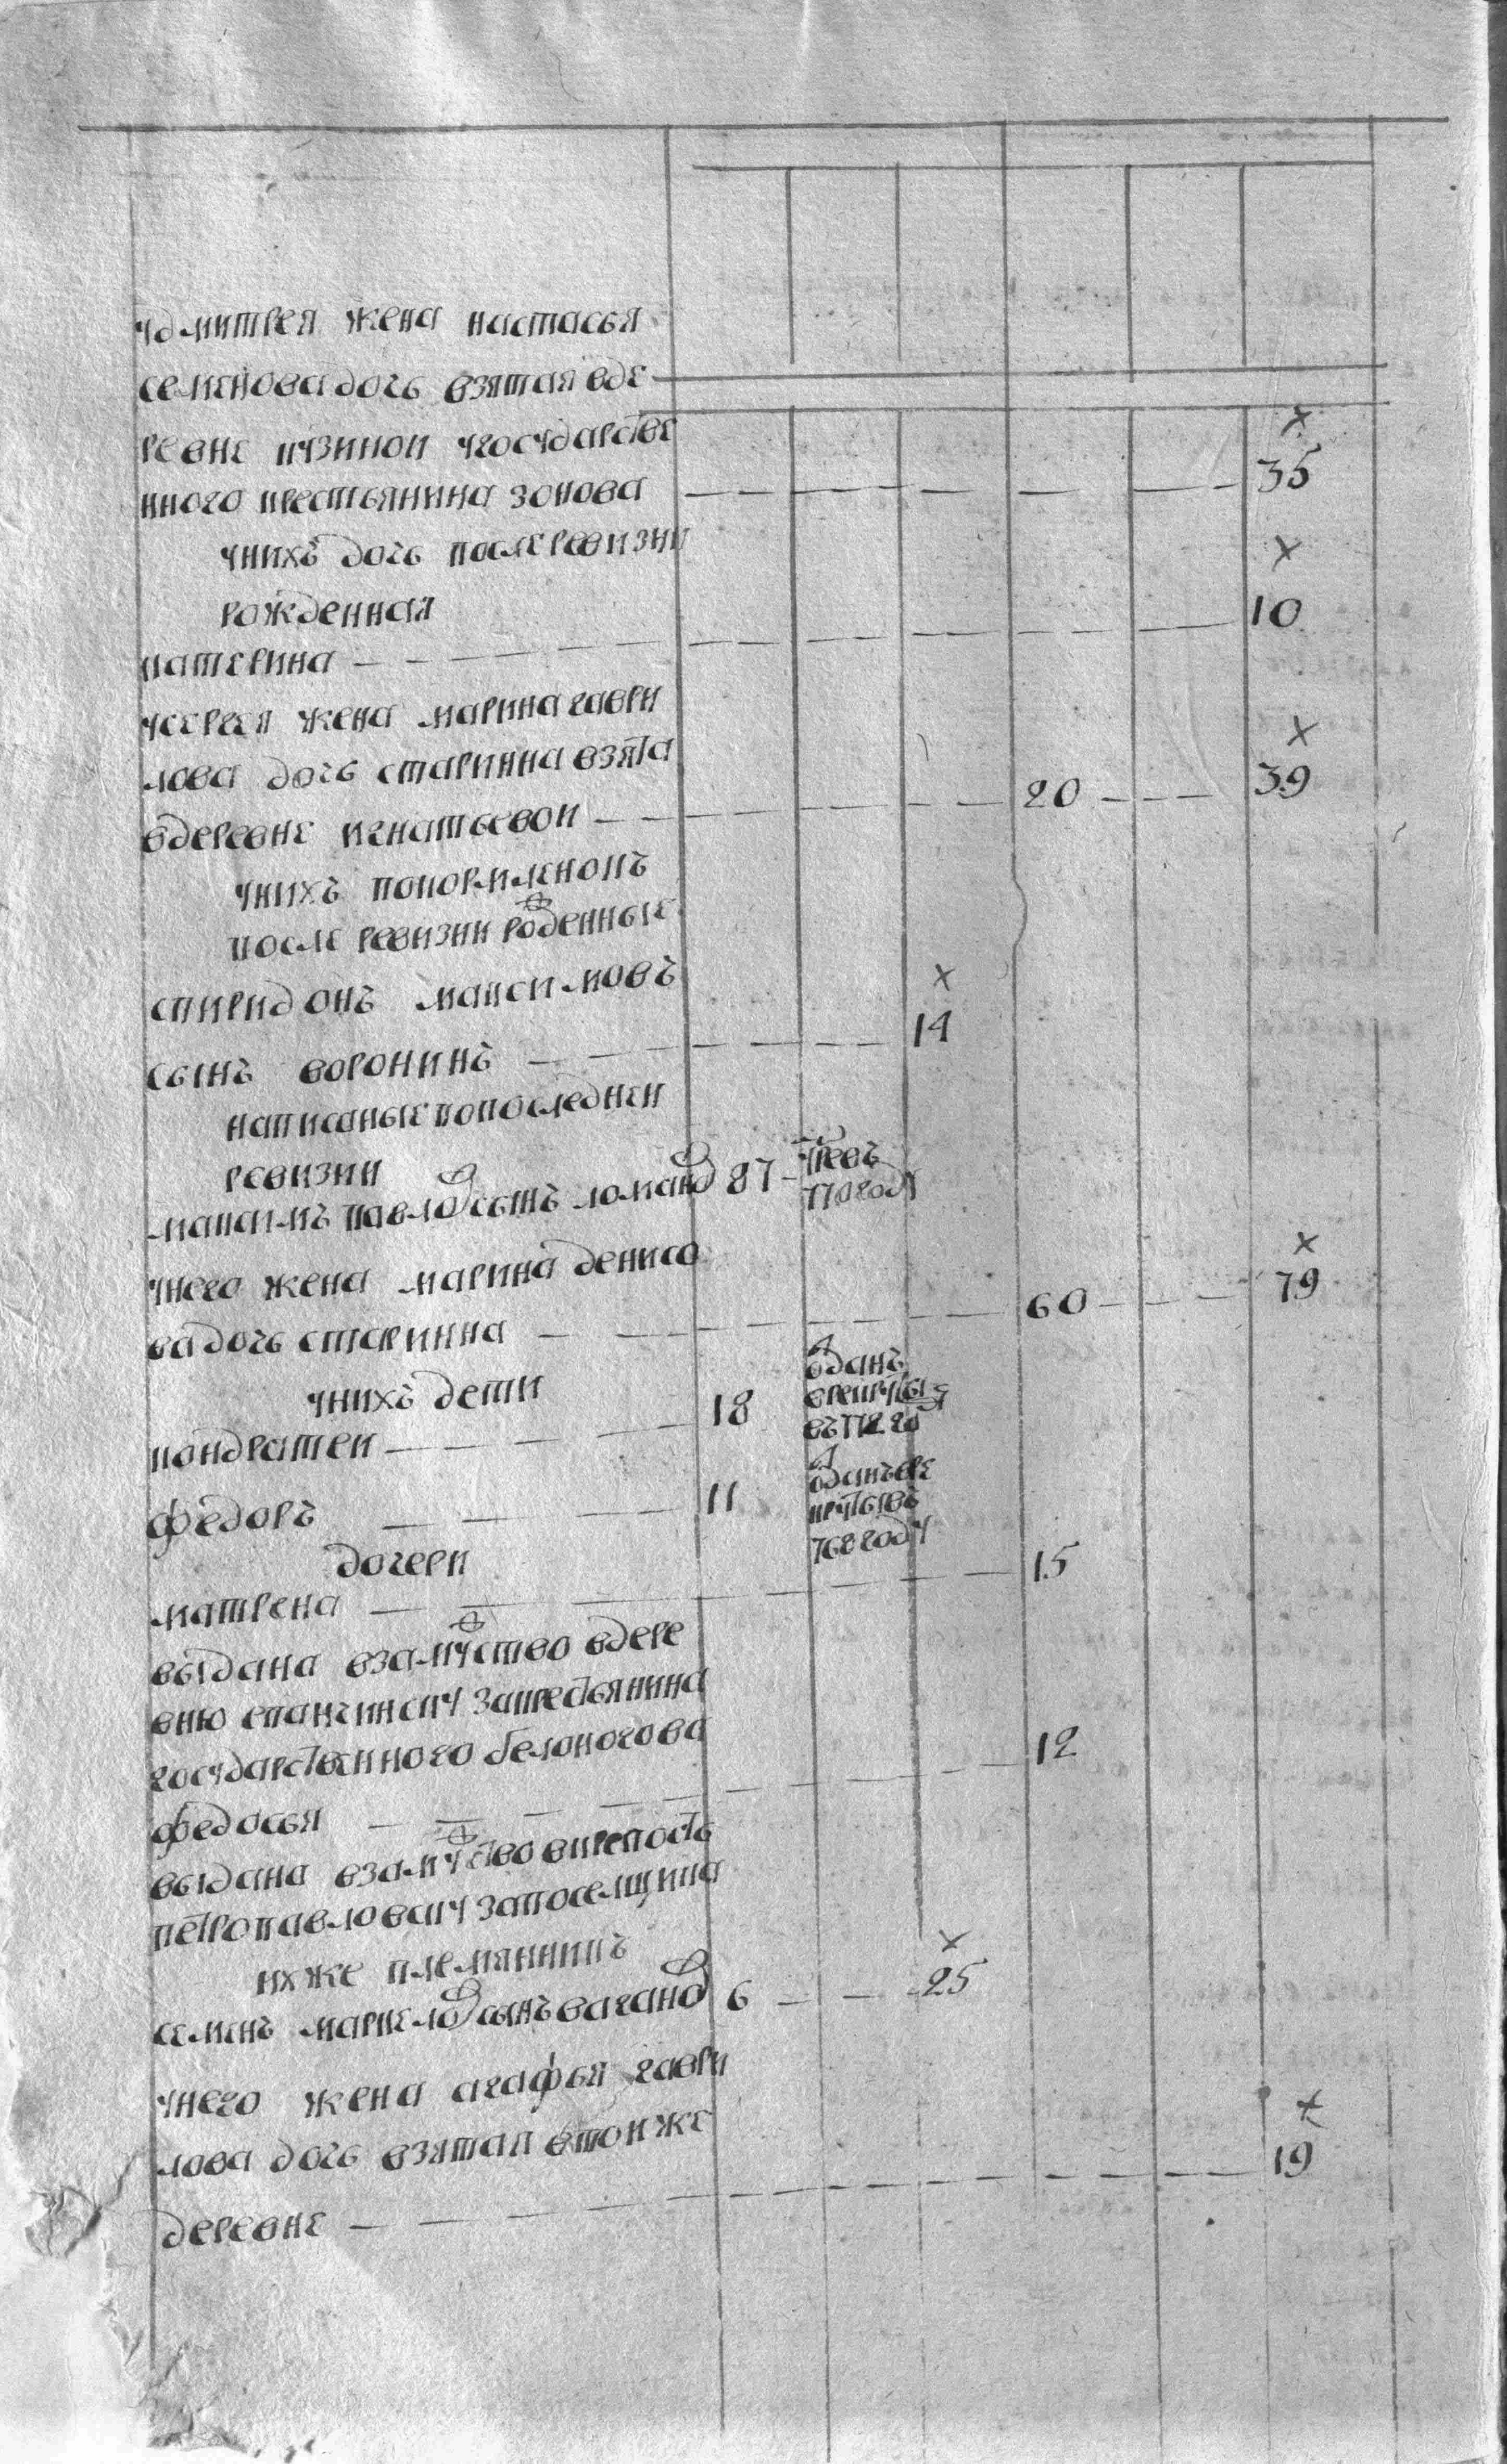 у дмитрея жена настасья
семенова дочь взятая вде
ревне кузиной угосударстве
нного крестьянина зонова
35
унихъ дочь после ревизии
рожденная
катерина 10
усергея жена марина гаври
лова дочь старинна взята
вдеревне игнатьевои 20 39
унихъ покормленокъ
после ревизии рожденные
спиридонъ максимовъ
сынъ воронинъ 14
написаные попоследнеи
ревизии
максимъ павловъ сынъ 87 умревъ
770 году
унего жена марина денисо
ва дочь старинна 60 79
унихъ дети
кондратеи 18 одданъ
врекруты
въ
федоръ 11 одданъ вре
круты въ
768 году
дочери
матрена 15
выдана взамужство вдере
вню епанчинску закрестьянина
государственного белоногова
федосья 12
выдана взамужство вкрепость
петропавловску запоселщика
ихже племянникъ
семенъ маркеловъ сынъ вагановъ 6 25
унего жена агафья гаври
лова дочь взятая втои же
деревне 19